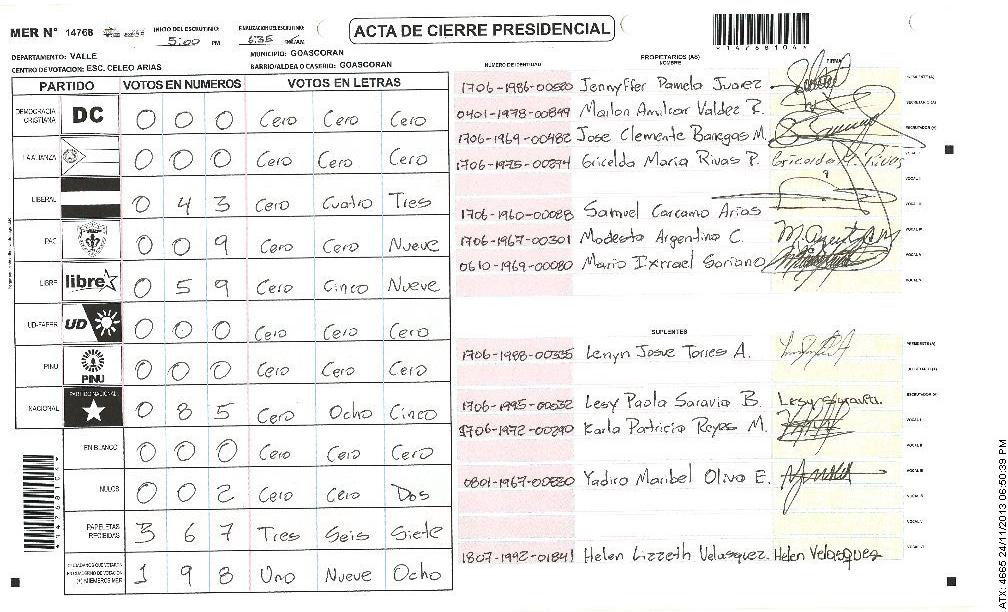 MER N° 14768 INICIO DEL ESCRUTINIO: 5:00 PM FINALIZACION DEL ESCRUTINIO: 6:35
ACTA DE CIERRE PRESIDENCIAL
DEPARTAMENTO: VALLE MUNICIPIO: GOASCORAN
CENTRO DE VOTACION: ESC. CELEO ARIAS BARRIO/ALDEA O CASERIO: GOASCORAN
PARTIDO VOTOS EN NUMEROS VOTOS EN LETRAS
DEMOCRACIA CRISTIANA DC 0 0 0 Cero Cero Cero
LA ALIANZA 0 0 0 Cero Cero Cero
LIBERAL 0 4 3 Cero Cuatro Tres
PAC 0 0 9 Cero Cero Nueve
LIBRE libre 0 5 9 Cero Cinco Nueve
UD-FAPER UD 0 0 0 Cero Cero Cero
PINU PINU 0 0 0 Cero Cero Cero
NACIONAL PARTIDO NACIONAL 0 8 5 Cero Ocho Cinco
EN BLANCO 0 0 0 Cero Cero Cero
NULOS 0 0 2 Cero Cero Dos
PAPELETAS RECIBIDAS 3 6 7 Tres Seis Siete
1 9 8 Uno Nueve Ocho
NUMERO DE IDENTIDAD PROPIETARIOS (AS) NOMBRE FIRMA
Jennyffer Pamela Juarez
0401-1978-00899 Marlon Amilcar Valdez R.
1706-1969-00482 Jose Clemente Banegas M.
1706-1975-00294 Gricelda Maria Rivas P.
1706-1960-00088 Samuel Carcamo Arias
1706-1967-00301 Modesto Argentino C.
0610-1969-00080 Mario Ixrrael Soriano
SUPLENTES
1706-1988-00335 Lenyn Josue Torres A.
1706-1995-00032 Lesy Paola Saravia B.
1706-1972-00290 Karla Patricia Reyes M.
0801-1967-00830 Yadira Maribel Oliva E.
1807-1992-01841 Helen Lizzeth Velasquez. Helen Velasquez
ATX: 4665 24/11/2013 06:50:39 PM